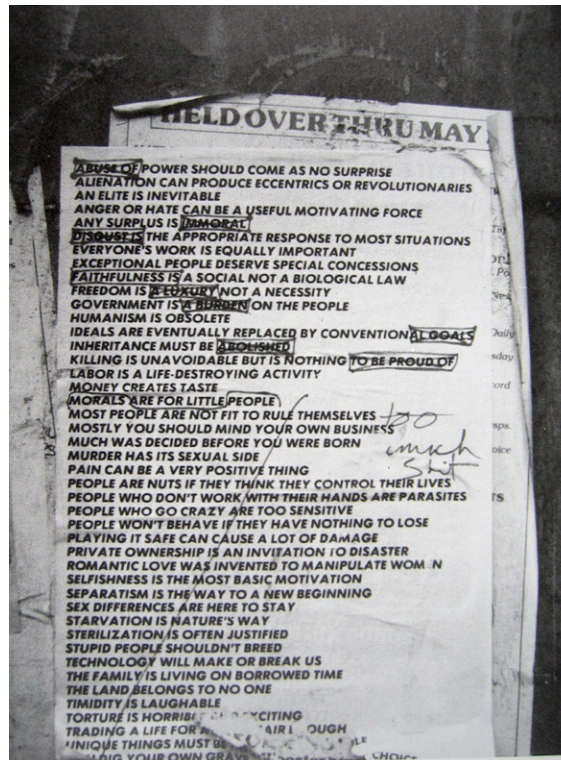 HELD OVER THRU MAY
ABUSE OF POWER SHOULD COME AS NO SURPRISE
ALIENATION CAN PRODUCE ECCENTRICS OR REVOLUTIONARIES
AN ELITE IS INEVITABLE
ANGER OR HATE CAN BE A USEFUL MOTIVATING FORCE
ANY SURPLUS IS IMMORAL
DISGUST IS THE APPROPRIATE RESPONSE TO MOST SITUATIONS
EVERYONE'S WORK IS EQUALLY IMPORTANT
EXCEPTIONAL PEOPLE DESERVE SPECIAL CONCESSIONS
FAITHFULNESS IS A SOCIAL NOT A BIOLOGICAL LAW
FREEDOM IS A LUXURY NOT A NECESSITY
GOVERNMENT IS A BURDEN ON THE PEOPLE
HUMANISM IS OBSOLETE
IDEALS ARE EVENTUALLY REPLACED BY CONVENTIONAL GOALS
INHERITANCE MUST BE ABOLISHED
KILLING IS UNAVOIDABLE BUT IS NOTHING TO BE PROUD OF
LABOR IS A LIFE-DESTROYING ACTIVITY
MONEY CREATES TASTE
MORALS ARE FOR LITTLE PEOPLE
MOST PEOPLE ARE NOT FIT TO RULE THEMSELVES
too
MOSTLY YOU SHOULD MIND YOUR OWN BUSINESS
MUCH WAS DECIDED BEFORE YOU WERE BORN
much
MURDER HAS ITS SEXUAL SIDE
shit
PAIN CAN BE A VERY POSITIVE THING
PEOPLE ARE NUTS IF THEY THINK THEY CONTROL THEIR LIVES
PEOPLE WHO DON'T WORK WITH THEIR HANDS ARE PARASITES
PEOPLE WHO GO CRAZY ARE TOO SENSITIVE
PEOPLE WON'T BEHAVE IF THEY HAVE NOTHING TO LOSE
PLAYING IT SAFE CAN CAUSE A LOT OF DAMAGE
PRIVATE OWNERSHIP IS AN INVITATION TO DISASTER
ROMANTIC LOVE WAS INVENTED TO MANIPULATE WOMEN
SELFISHNESS IS THE MOST BASIC MOTIVATION
SEPARATISM IS THE WAY TO A NEW BEGINNING
SEX DIFFERENCES ARE HERE TO STAY
STARVATION IS NATURE'S WAY
STERILIZATION IS OFTEN JUSTIFIED
STUPID PEOPLE SHOULDN'T BREED
TECHNOLOGY WILL MAKE OR BREAK US
THE FAMILY IS LIVING ON BORROWED TIME
THE LAND BELONGS TO NO ONE
TIMIDITY IS LAUGHABLE
TORTURE IS HORRIBLE AND EXCITING
TRADING A LIFE FOR A
UNIQUE THINGS MUST BE
DIG YOUR OWN CHOICE